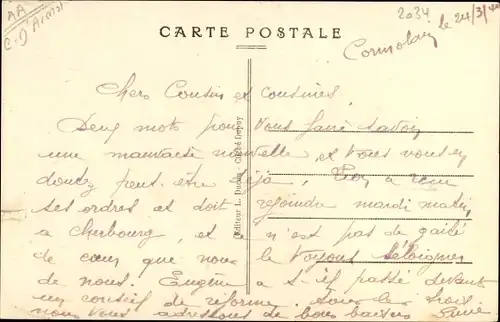 AA
2034
CARTE POSTALE
le 24/3/4
Chers Cousin et cousines,
Deux mots pour vous faire savoir
une mauvaise nouvelle et vous vous en
doutez peut-être déjà, a reçu
ses ordres et doit rejoindre mardi matin
a Cherbourg, et ce n'est pas de gaité
de cœur que nous le voyons s'éloigner
de nous. Eugène a s-il passé devant
un conseil de reforme. les trois
nous vous adressons de bons baisers
Editeur L.